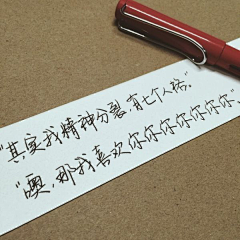 "其实我精神分裂,有七个人格。"
"噢,那我喜欢你你你你你你你"